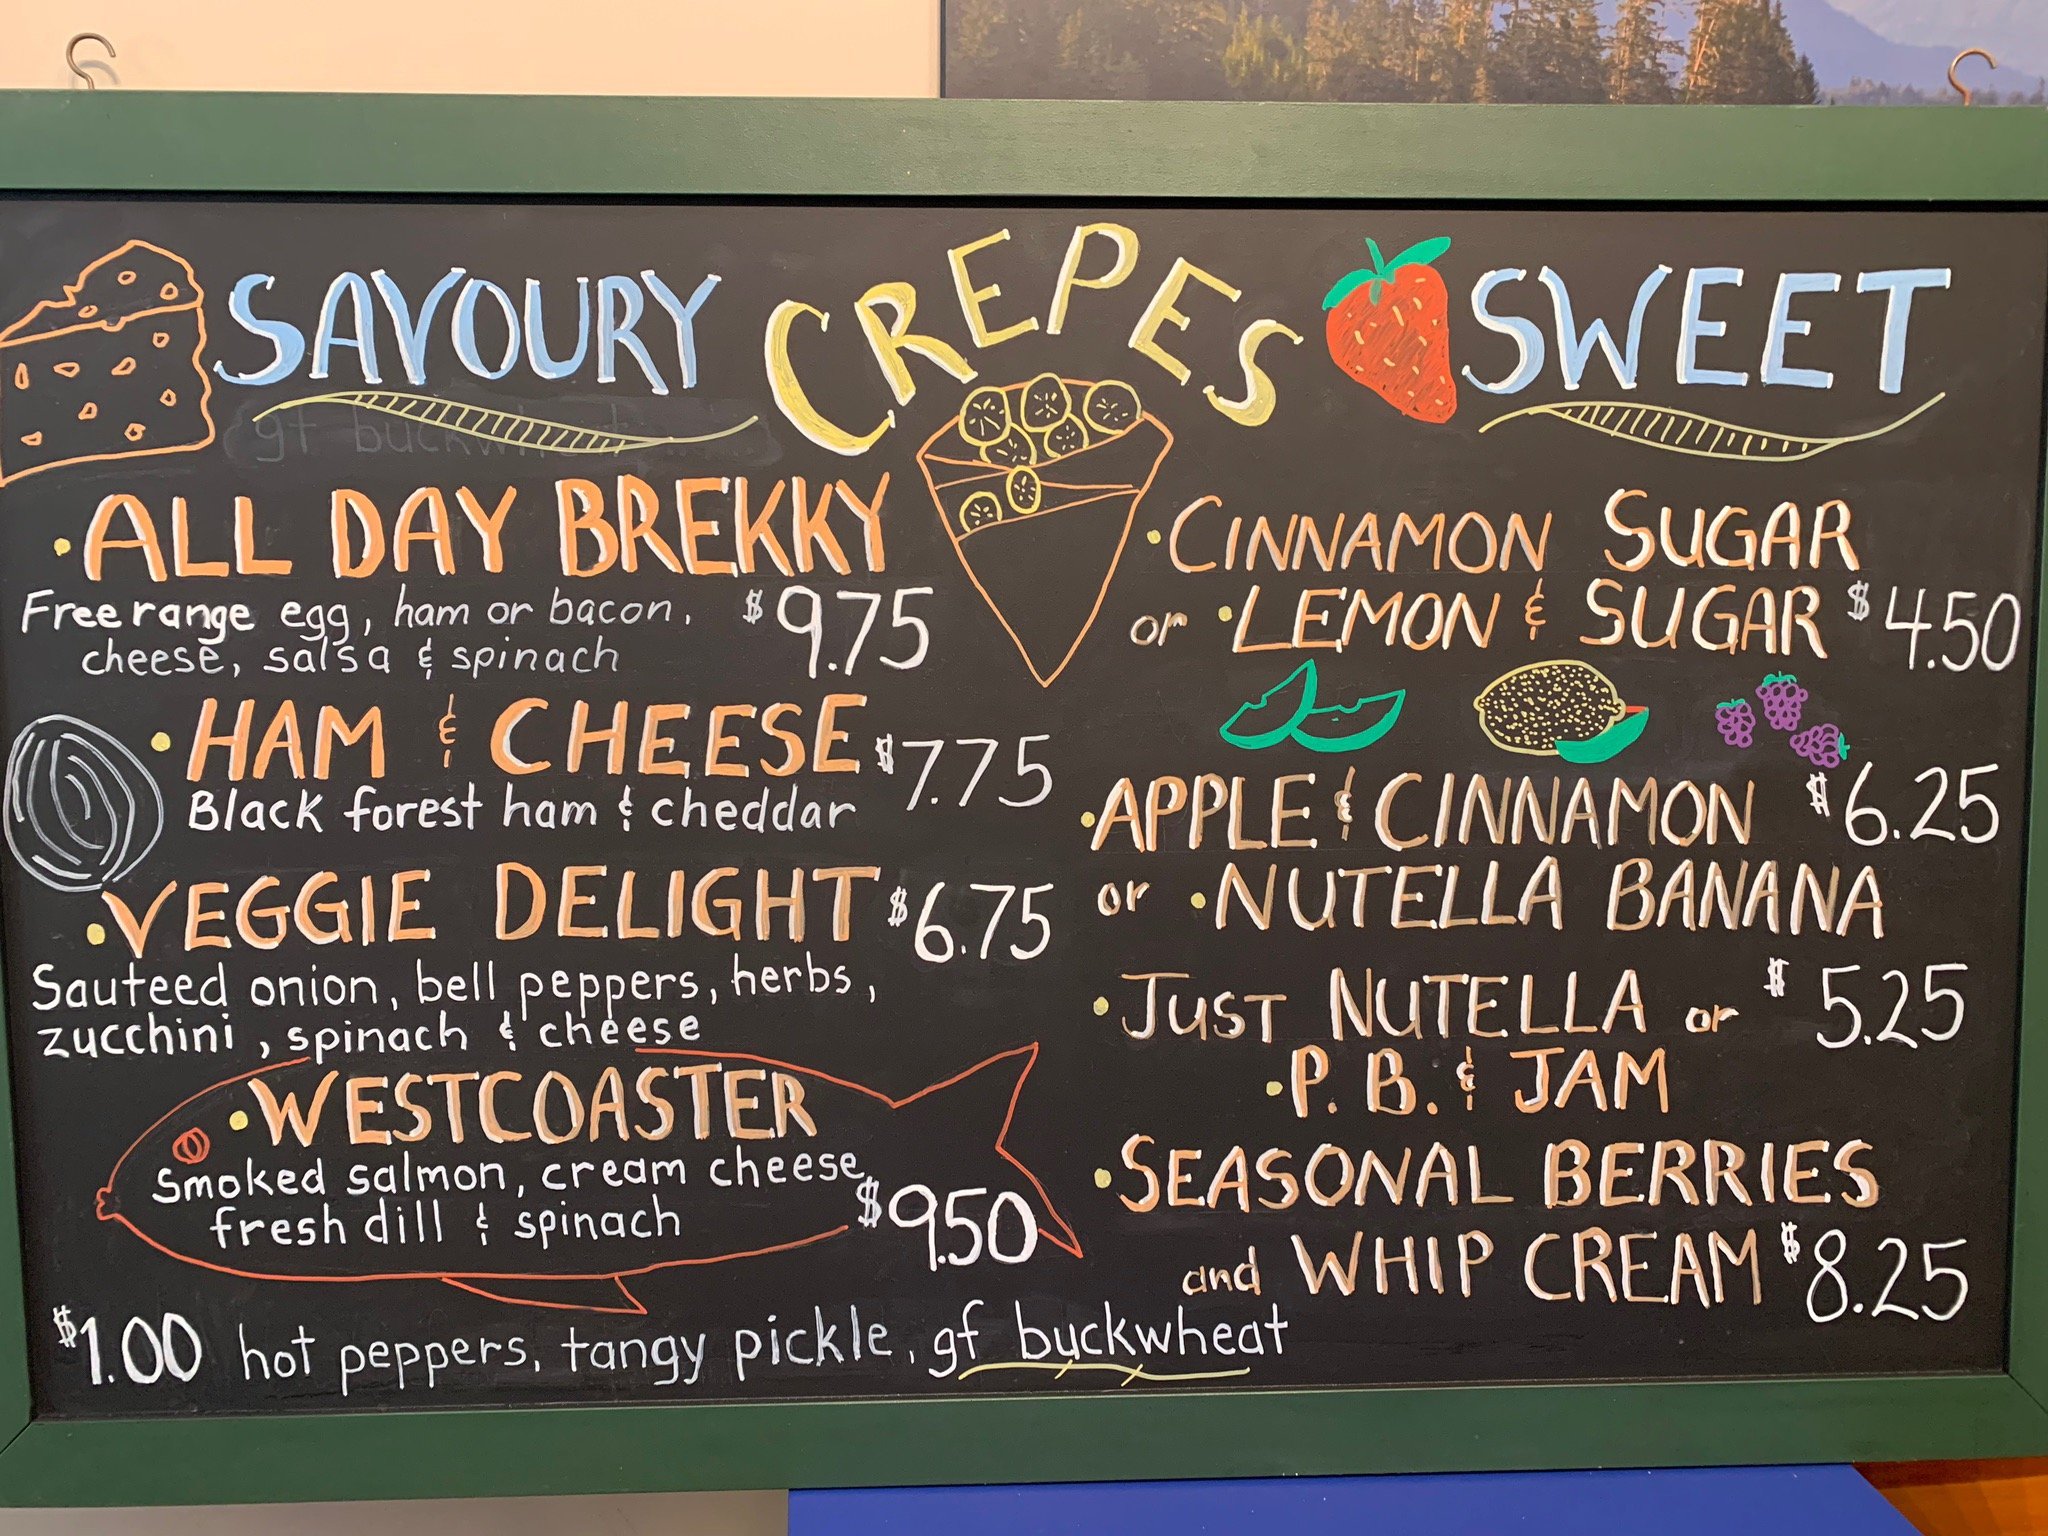 SAVOURY CREPES SWEET
gf buckwheat
• ALL DAY BREKKY
Free range egg, ham or bacon, $9.75
cheese, salsa & spinach
• HAM & CHEESE $7.75
Black forest ham & cheddar
• VEGGIE DELIGHT $6.75
Sauteed onion, bell peppers, herbs,
zucchini, spinach & cheese
• WESTCOASTER
Smoked salmon, cream cheese,
fresh dill & spinach $9.50
$1.00 hot peppers, tangy pickle, gf buckwheat
• CINNAMON SUGAR
or • LEMON & SUGAR $4.50
• APPLE & CINNAMON $6.25
or • NUTELLA BANANA
• JUST NUTELLA or $5.25
• P.B. & JAM
• SEASONAL BERRIES
and WHIP CREAM $8.25